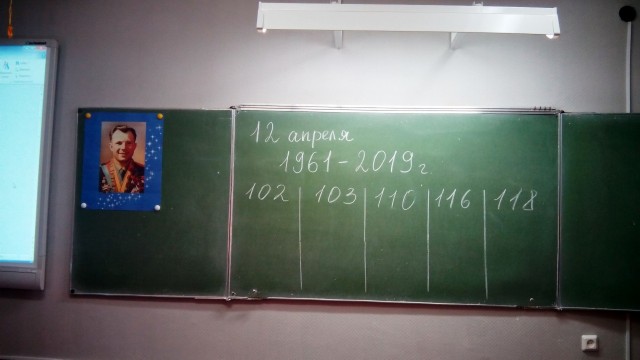 12 апреля
1961-2019г.
102 103 110 116 118